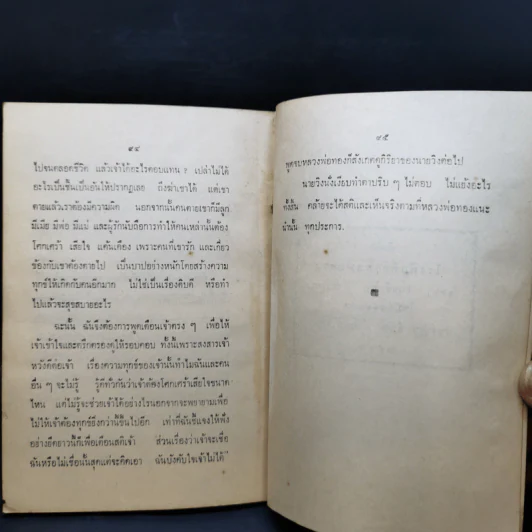 ๙๔
ไปจนตลอดชีวิต แล้วเจ้าได้อะไรตอบแทน ? เปล่าไม่ได้
อะไรเป็นชิ้นเป็นอันให้ปรากฏเลย ถึงฆ่าเขาได้ แต่เขา
ตายแล้วเราต้องมีความผิด นอกจากนั้นคนตายเขาก็มีลูก
มีเมีย มีพ่อ มีแม่ และผู้รักนับถือการทำให้คนเหล่านั้นต้อง
โศกเศร้า เสียใจ แค้นเคือง เพราะคนที่เขารัก และเกี่ยว
ข้องกับเขาต้องตายไป เป็นบาปอย่างหนักโดยสร้างความ
ทุกข์ให้เกิดกับคนอื่นมาก ไม่ใช่เป็นเรื่องคิดดี หรือทำ
ไปแล้วจะสุขสบายอะไร
ฉะนั้น ฉันจึงต้องการพูดเตือนเจ้าตรง ๆ เพื่อให้
เจ้าเข้าใจและตรึกตรองดูให้รอบคอบ ทั้งนี้เพราะสงสารเจ้า
หวังดีต่อเจ้า เรื่องความทุกข์ของเจ้านั้นทำไมฉันและคน
อื่น ๆ จะไม่รู้ รู้ดีทั่วกันว่าเจ้าต้องโศกเศร้าเสียใจขนาด
ไหน แต่ไม่รู้จะช่วยเจ้าได้อย่างไรนอกจากจะพยายามเพื่อ
ไม่ให้เจ้าต้องทุกข์ยิ่งกว่านี้ขึ้นไปอีก เท่าที่ฉันชี้แจงให้ฟัง
อย่างยืดยาวนี้ก็เพื่อเตือนสติเจ้า ส่วนเรื่องว่าเจ้าจะเชื่อ
ฉันหรือไม่เชื่อนั้นสุดแต่จะคิดเอา ฉันบังคับใจเจ้าไม่ได้"
๙๕
พูดจบหลวงพ่อทองก็สังเกตดูกิริยาของนายวิงต่อไป
นายวิงนั่งเงียบทำตาปริบ ๆ ไม่ตอบ ไม่แย้งอะไร
ทั้งสิ้น คล้ายจะได้สติและเห็นจริงตามที่หลวงพ่อทองแนะ
นำนั้น ทุกประการ.